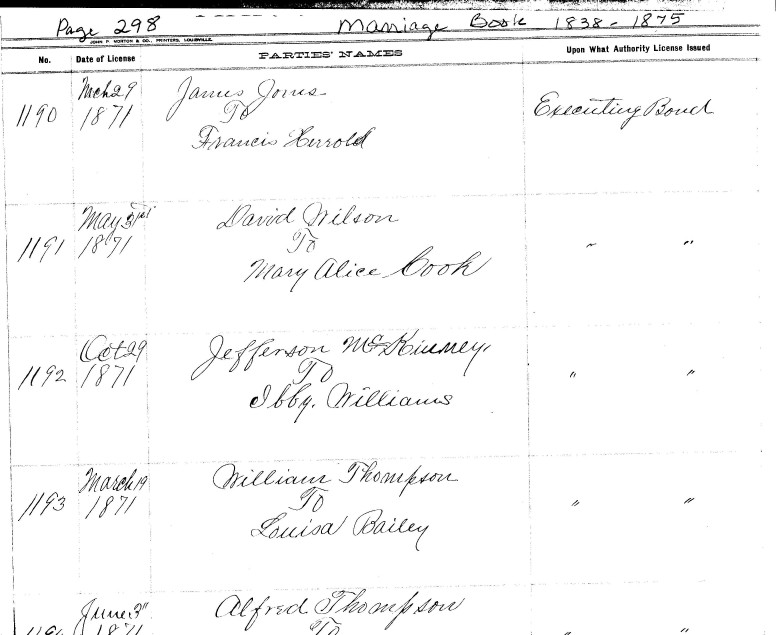 Page 298 Marriage Book 1838-1875
JOHN P. MORTON & CO., PRINTERS, LOUISVILLE.
No. Date of License PARTIES' NAMES Upon What Authority License Issued
Mch 29 James Jones
1190 1871 To Executing Bond
Francis Herrold
May 31st David Wilson
1191 1871 To " "
Mary Alice Cook
Oct 29 Jefferson McKinney
1192 1871 To " "
Ibby. Williams
March 19 William Thompson
1193 1871 To " "
Louisa Bailey
June 3" Alfred Thompson
1871 To " "